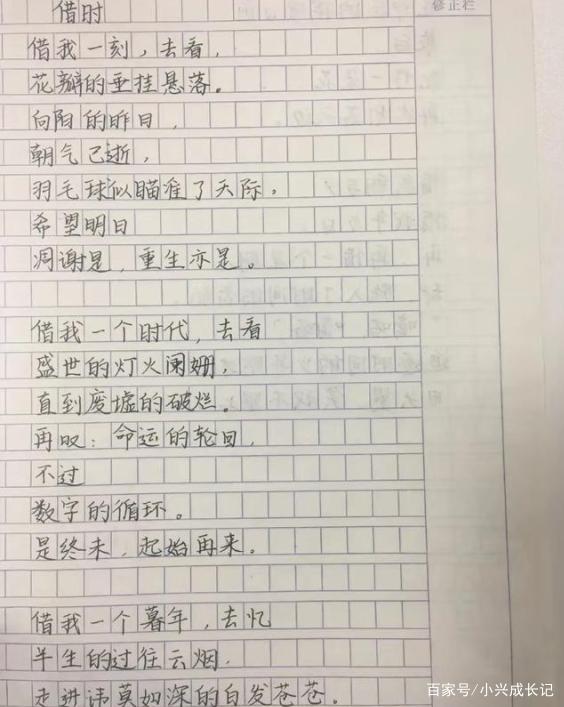 修正栏
借时
借我一刻,去看,
花瓣的垂挂悬落。
向阳的昨日,
朝气已逝,
羽毛球似瞄准了天际,
希望明日
凋谢是,重生亦是。
借我一个时代,去看
盛世的灯火阑姗,
直到废墟的破烂。
再叹:命运的轮回,
不过
数字的循环。
是终末,起始再来。
借我一个暮年,去忆
半生的过往云烟,
走进讳莫如深的白发苍苍。
百家号/小兴成长记